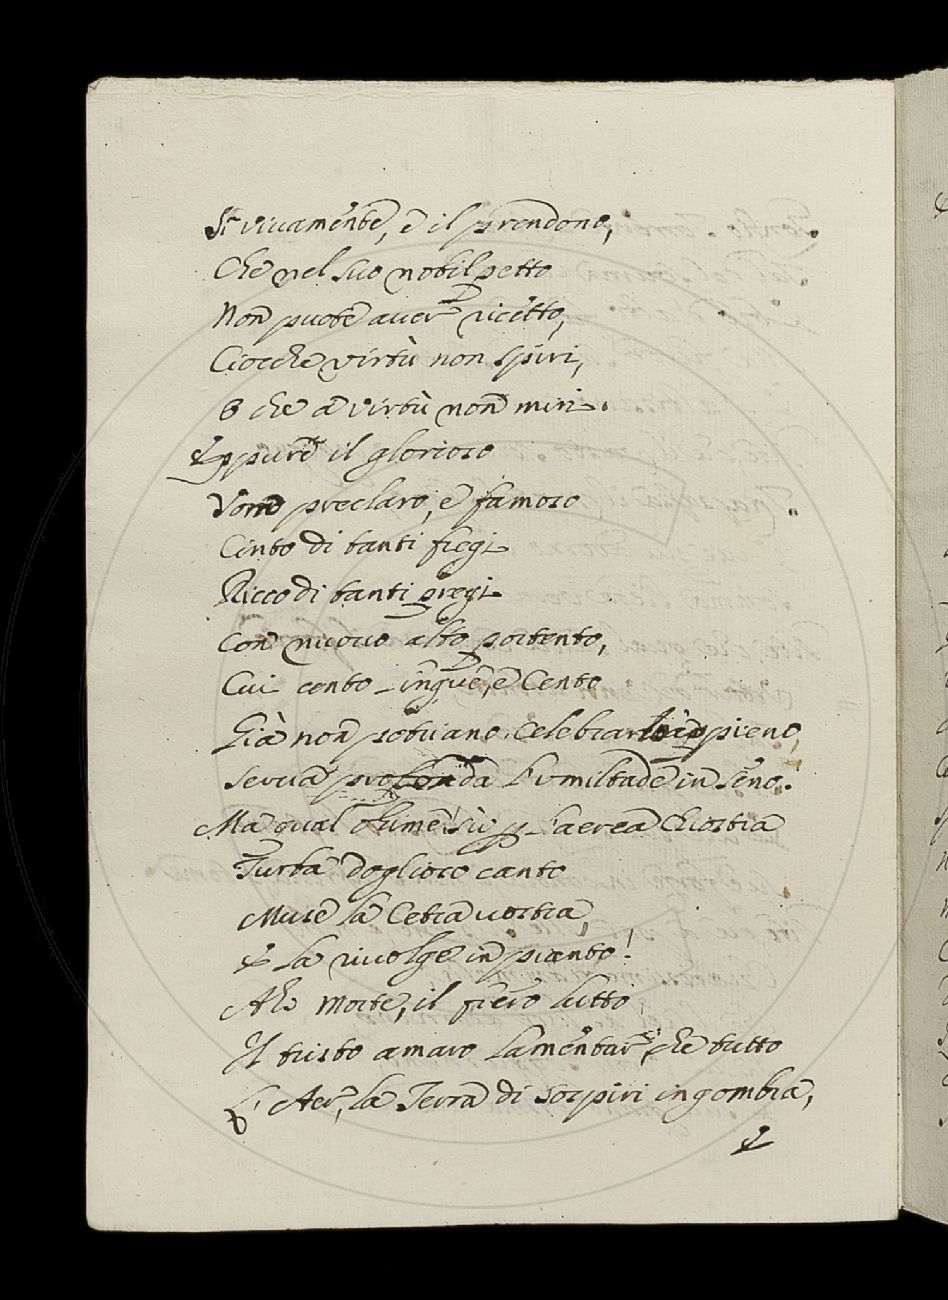 Sì vivamente, e il prendono,
Che nel suo nobil petto
Non puote aver ricetto,
Ciocche virtù non spiri,
O che a virtù non miri.
Eppure il glorioso
Uomo preclaro, e famoso
Cinto di tanti fregi
Ricco di tanti pregi
Con nuovo alto portento,
Cui cento lingue, e Cento
Già non potriano Celebrar appieno,
Servia profonda Humiltade in seno.
Ma qual ohimè! sù p l'aerea Chiostra
Turba doglioso canto
Muse la Cetra vostra
E la rivolge in pianto!
Ahi Morte, il fiero lutto
Il tristo amaro lamentar, che tutto
L'Aer, la Terra di sospiri ingombra,
E